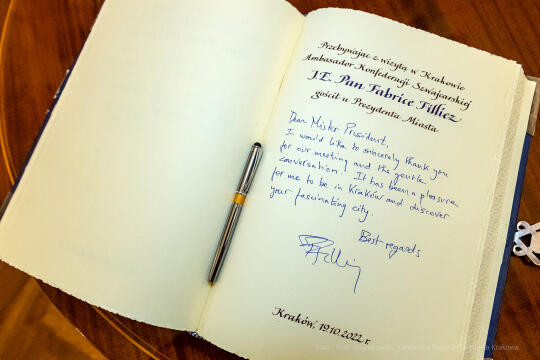 Przebywając z wizytą w Krakowie
Ambasador Konfederacji Szwajcarskiej
J.E. Pan Fabrice Filliez
gościł u Prezydenta Miasta
Dear Mister President,
I would like to sincerely thank you
for our meeting and the gentle
conversation. It has been a pleasure
for me to be in Kraków and discover
your fascinating city.
Best regards
Kraków, 19.10.2022 r.